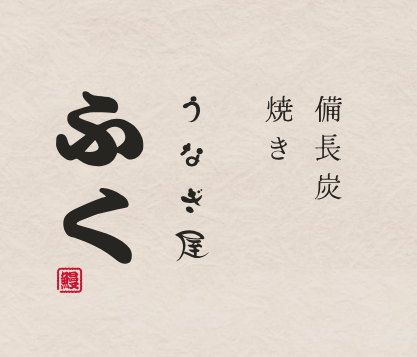 備長炭
焼き
うなぎ屋
ふく
鰻